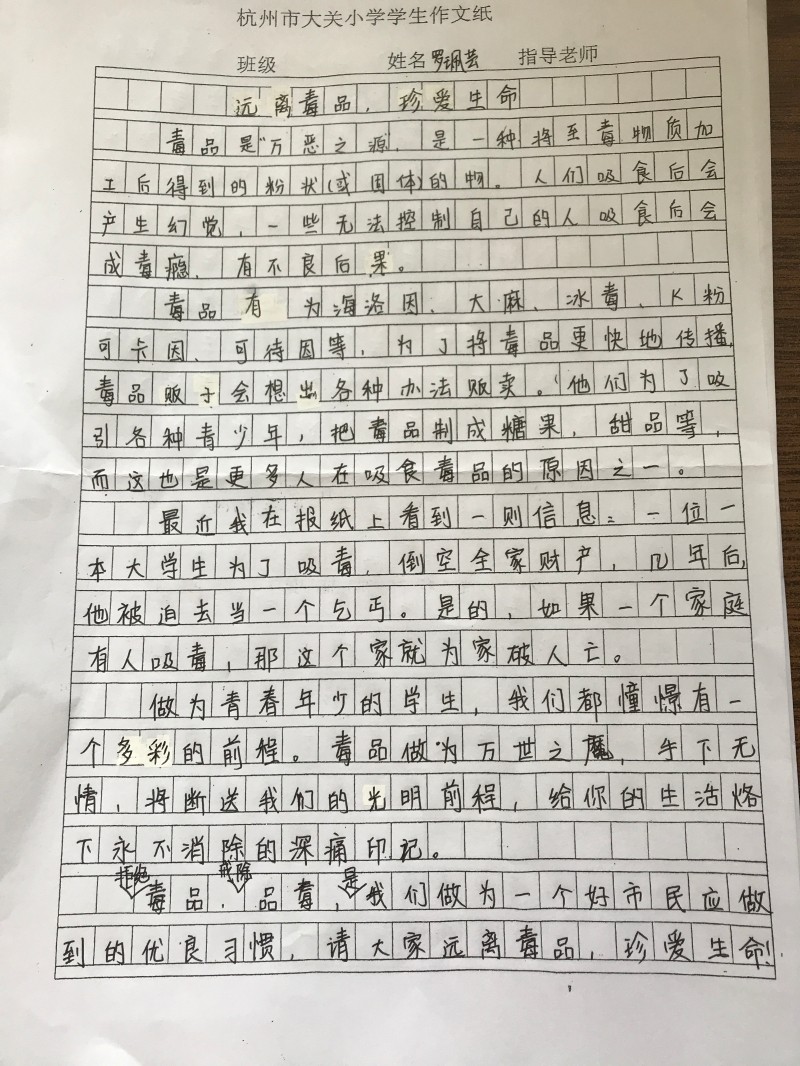 杭州市大关小学学生作文纸
班级 姓名 罗珮芸 指导老师
远离毒品，珍爱生命
毒品是“万恶之源”，是一种将至毒物质加
工后得到的粉状(或固体)的物。人们吸食后会
产生幻觉，一些无法控制自己的人吸食后会
成毒瘾、有不良后果。
毒品有为海洛因、大麻、冰毒、K粉
可卡因、可待因等，为了将毒品更快地传播,
毒品贩子会想出各种办法贩卖。他们为了吸
引各种青少年，把毒品制成糖果，甜品等，
而这也是更多人在吸食毒品的原因之一。
最近我在报纸上看到一则信息：一位一
本大学生为了吸毒，倒空全家财产，几年后,
他被迫去当一个乞丐。是的，如果一个家庭
有人吸毒，那这个家就为家破人亡。
做为青春年少的学生，我们都憧憬有一
个多彩的前程。毒品做为万世之魔，手下无
情，将断送我们的光明前程，给你的生活烙
下永不消除的深痛印记。
拒绝毒品，戒除品毒，是我们做为一个好市民应做
到的优良习惯，请大家远离毒品，珍爱生命！